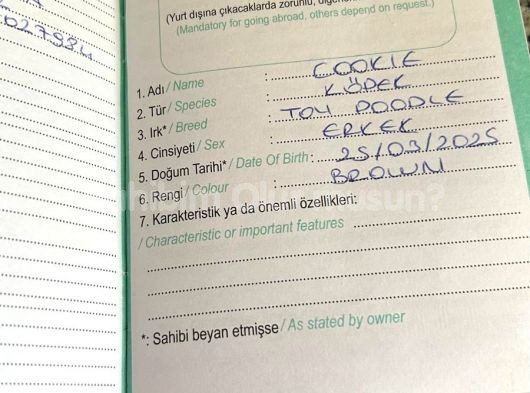 027934
(Yurt dışına çıkacaklarda zorunlu,
(Mandatory for going abroad, others depend on request.)
1. Adı / Name : COOKIE
2. Tür / Species : KÖPEK
3. Irk* / Breed : TOY POODLE
4. Cinsiyeti / Sex : ERKEK
5. Doğum Tarihi* / Date Of Birth : 25/03/2025
6. Rengi / Colour : BROWN
7. Karakteristik ya da önemli özellikleri:
/ Characteristic or important features
*: Sahibi beyan etmişse / As stated by owner